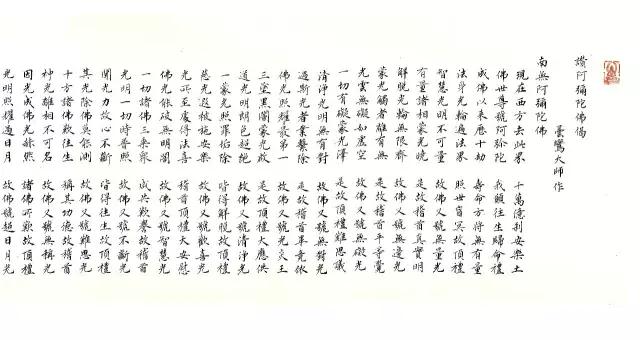 讚阿彌陀佛偈
曇鸞大師作
南無阿彌陀佛
現在西方去此界 十萬億刹安樂土
佛世尊號阿彌陀 我願往生歸命禮
成佛以來歷十劫 壽命方將無有量
法身光輪遍法界 照世盲冥故頂禮
智慧光明不可量 故佛又號無量光
有量諸相蒙光曉 是故稽首真實明
解脫光輪無限齊 故佛又號無邊光
蒙光觸者離有無 是故稽首平等覺
光雲無礙如虛空 故佛又號無礙光
一切有礙蒙光澤 是故頂禮難思議
清淨光明無有對 故佛又號無對光
遇斯光者業繫除 是故稽首畢竟依
佛光照耀最第一 故佛又號光炎王
三塗黑闇蒙光啟 是故頂禮大應供
道光明朗色超絕 故佛又號清淨光
一蒙光照罪垢除 皆得解脫故頂禮
慈光遐被施安樂 故佛又號歡喜光
光所至處得法喜 稽首頂禮大安慰
佛光能破無明闇 故佛又號智慧光
一切諸佛三乘眾 咸共歎譽故稽首
光明一切時普照 故佛又號不斷光
聞光力故心不斷 皆得往生故頂禮
其光除佛莫能測 故佛又號難思光
十方諸佛歎往生 稱其功德故稽首
神光離相不可名 故佛又號無稱光
因光成佛光赫然 諸佛所歎故頂禮
光明照耀過日月 故佛號超日月光